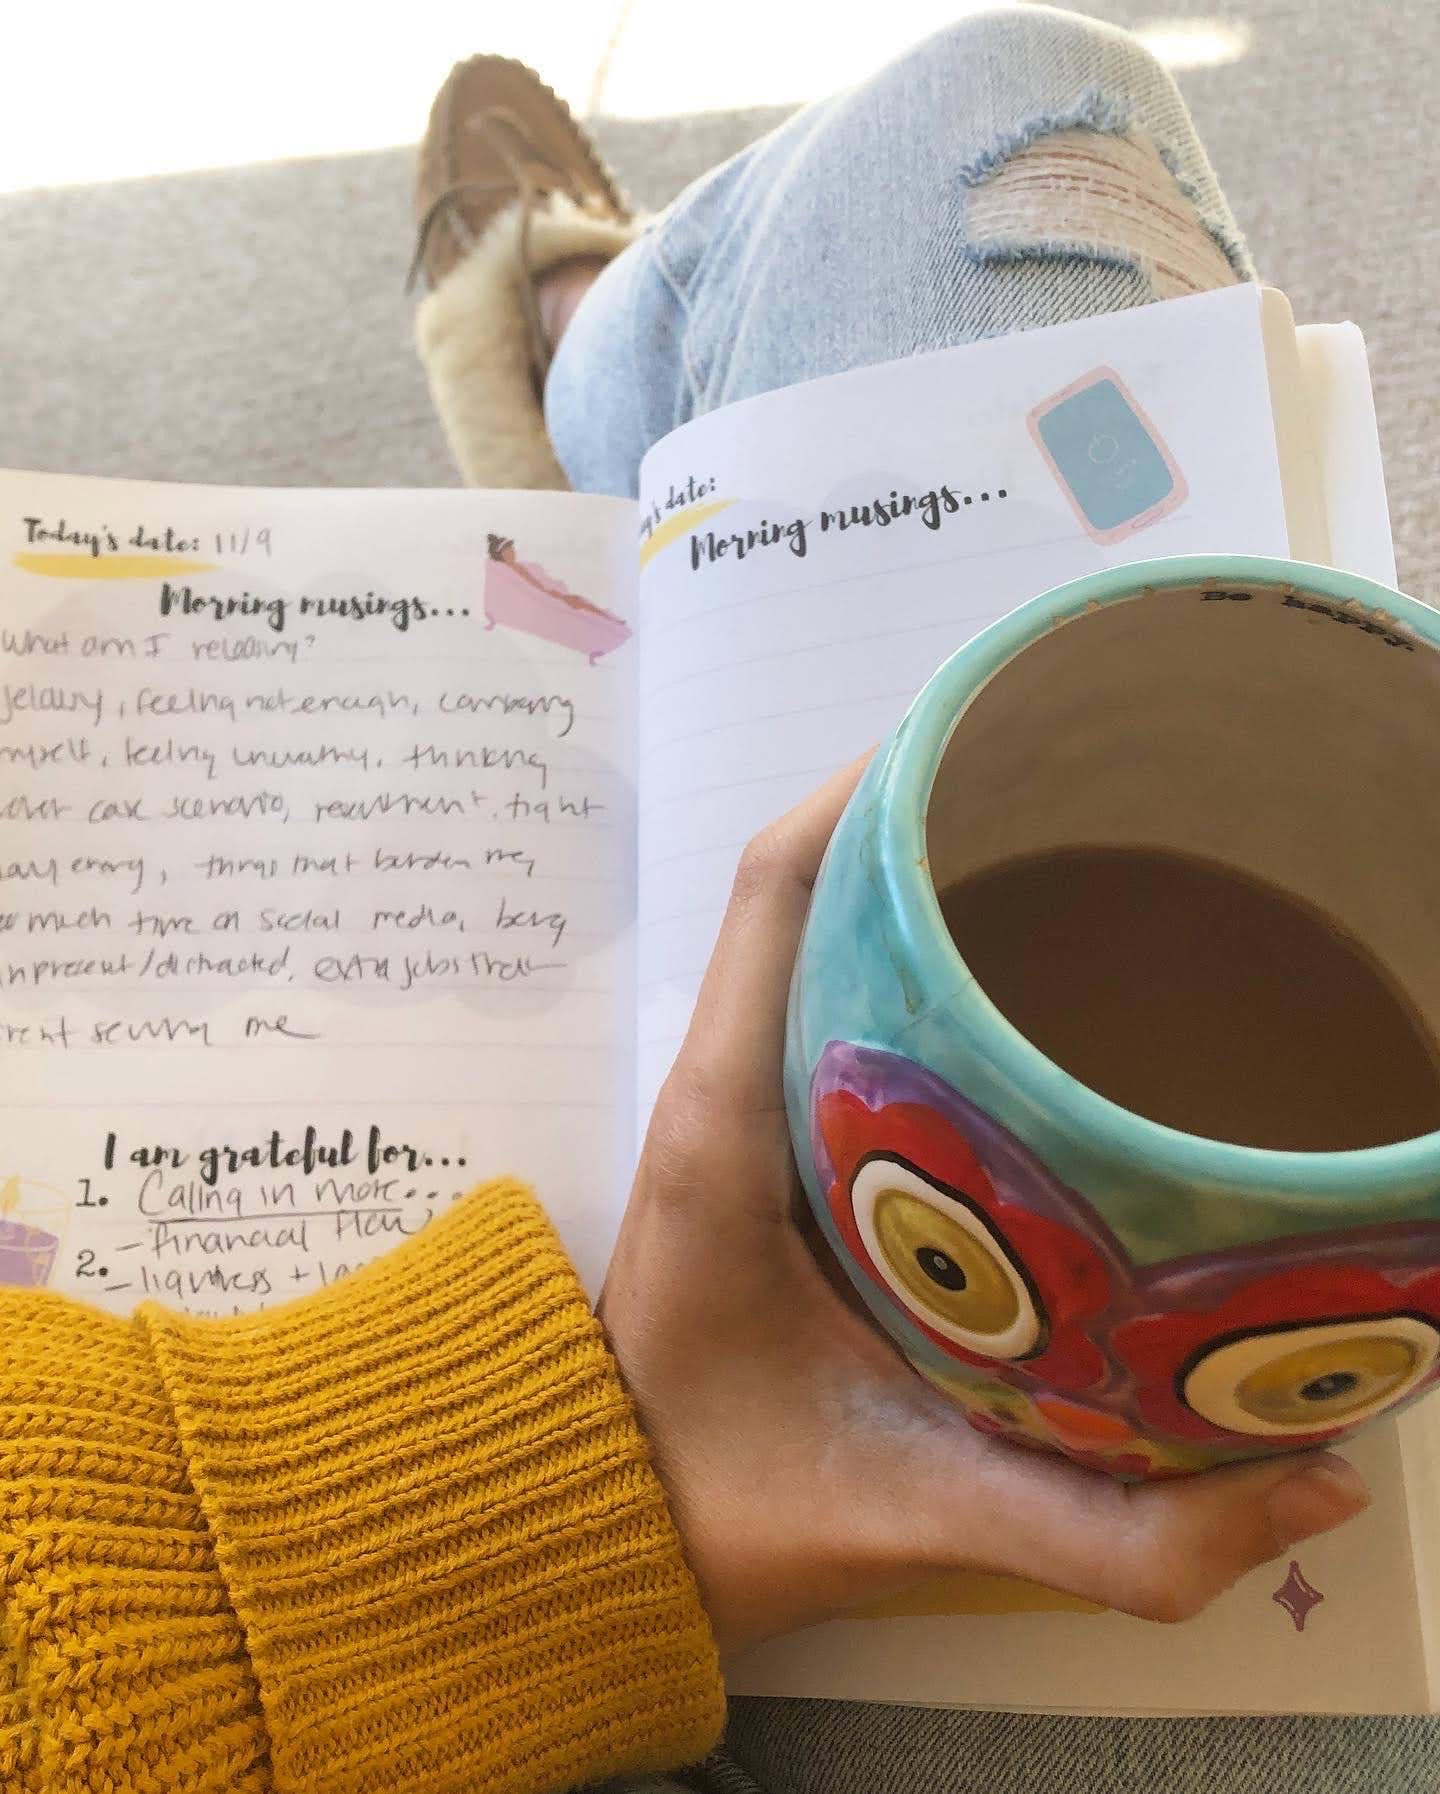 Today's date: 11/9
Morning musings...
What am I releasing?
jelousy, feeling not enough, comparing
myself, feeling unworthy, thinking
over case scenario, resentment, tight
energy, things that burden me,
much time on social media, being
unpresent/distracted, extra jobs that
me
I am grateful for...
1. Calling in more...
- financial flow
2. - lightness +
date:
Morning musings...
Be happy.